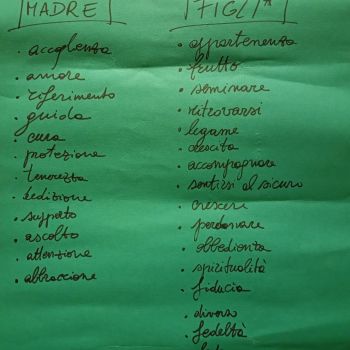 MADRE
• accoglienza
• amore
• riferimento
• guida
• cura
• protezione
• tenerezza
• dedizione
• supporto
• ascolto
• attenzione
• abbraccione
FIGLI*
• appartenenza
• frutto
• seminare
• ritrovarsi
• legame
• crescita
• accompagnare
• sentirsi al sicuro
• crescere
• perdonare
• obbedienta
• spiritualità
• fiducia
• diverso
• fedeltà